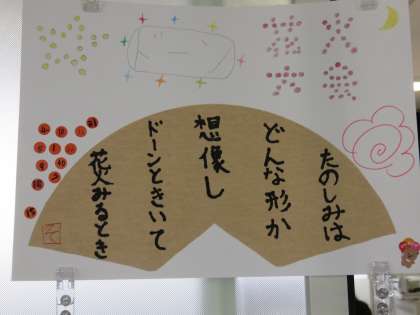 花火
大会
たのしみは
どんな形か
想像し
ドーンときいて
花火みるとき